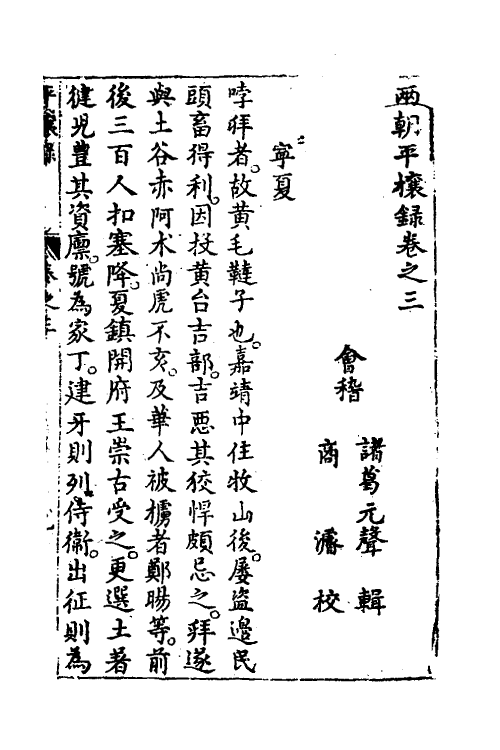 兩朝平攘錄卷之三
會稽
諸葛元聲 輯
商 濬 校
寧夏
哱拜者。故黃毛韃子也。嘉靖中住牧山後。屢盜邊民
頭畜得利。因投黃台吉部。吉惡其狡悍頗忌之。拜遂
與土谷赤阿木尚虎不亥。及華人被擄者鄭暘等。前
後三百人扣塞降。夏鎮開府王崇古受之。更選土著
健兒豊其資廪。號為家丁。建牙則列侍衛。出征則為
平攘錄
卷之三